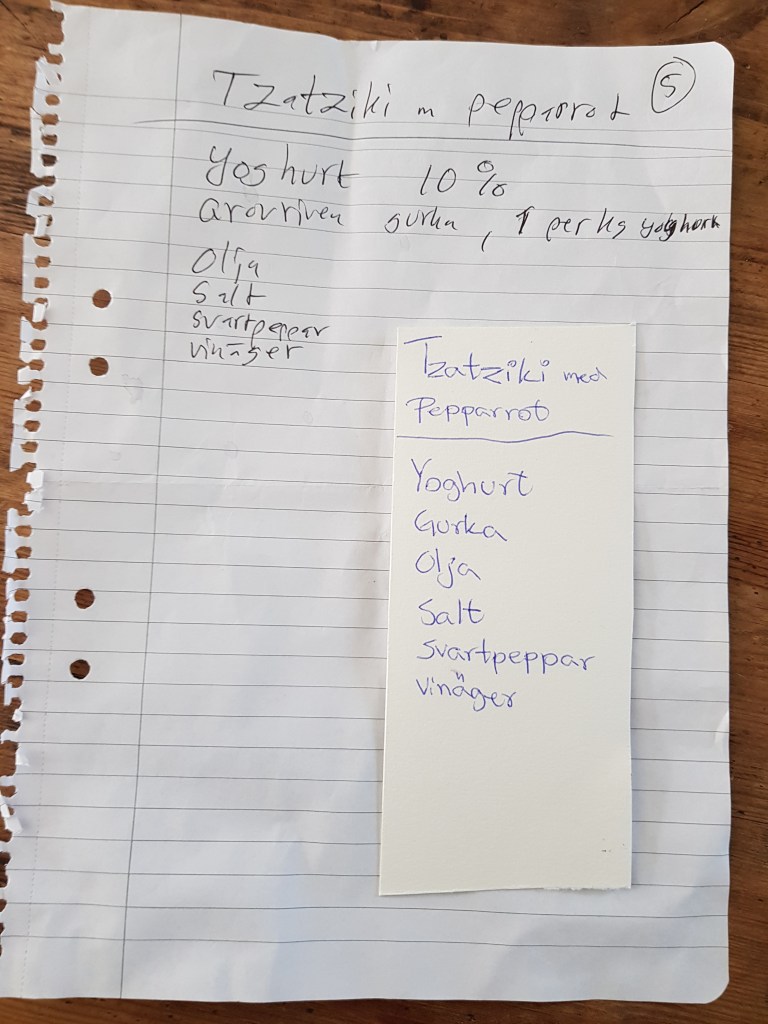 Tzatziki m pepparrot 5
Yoghurt 10%
Grovriven gurka, 1 per kg yoghurt
Olja
Salt
svartpeppar
vinäger
Tzatziki med
Pepparrot
Yoghurt
Gurka
Olja
Salt
svartpeppar
vinäger